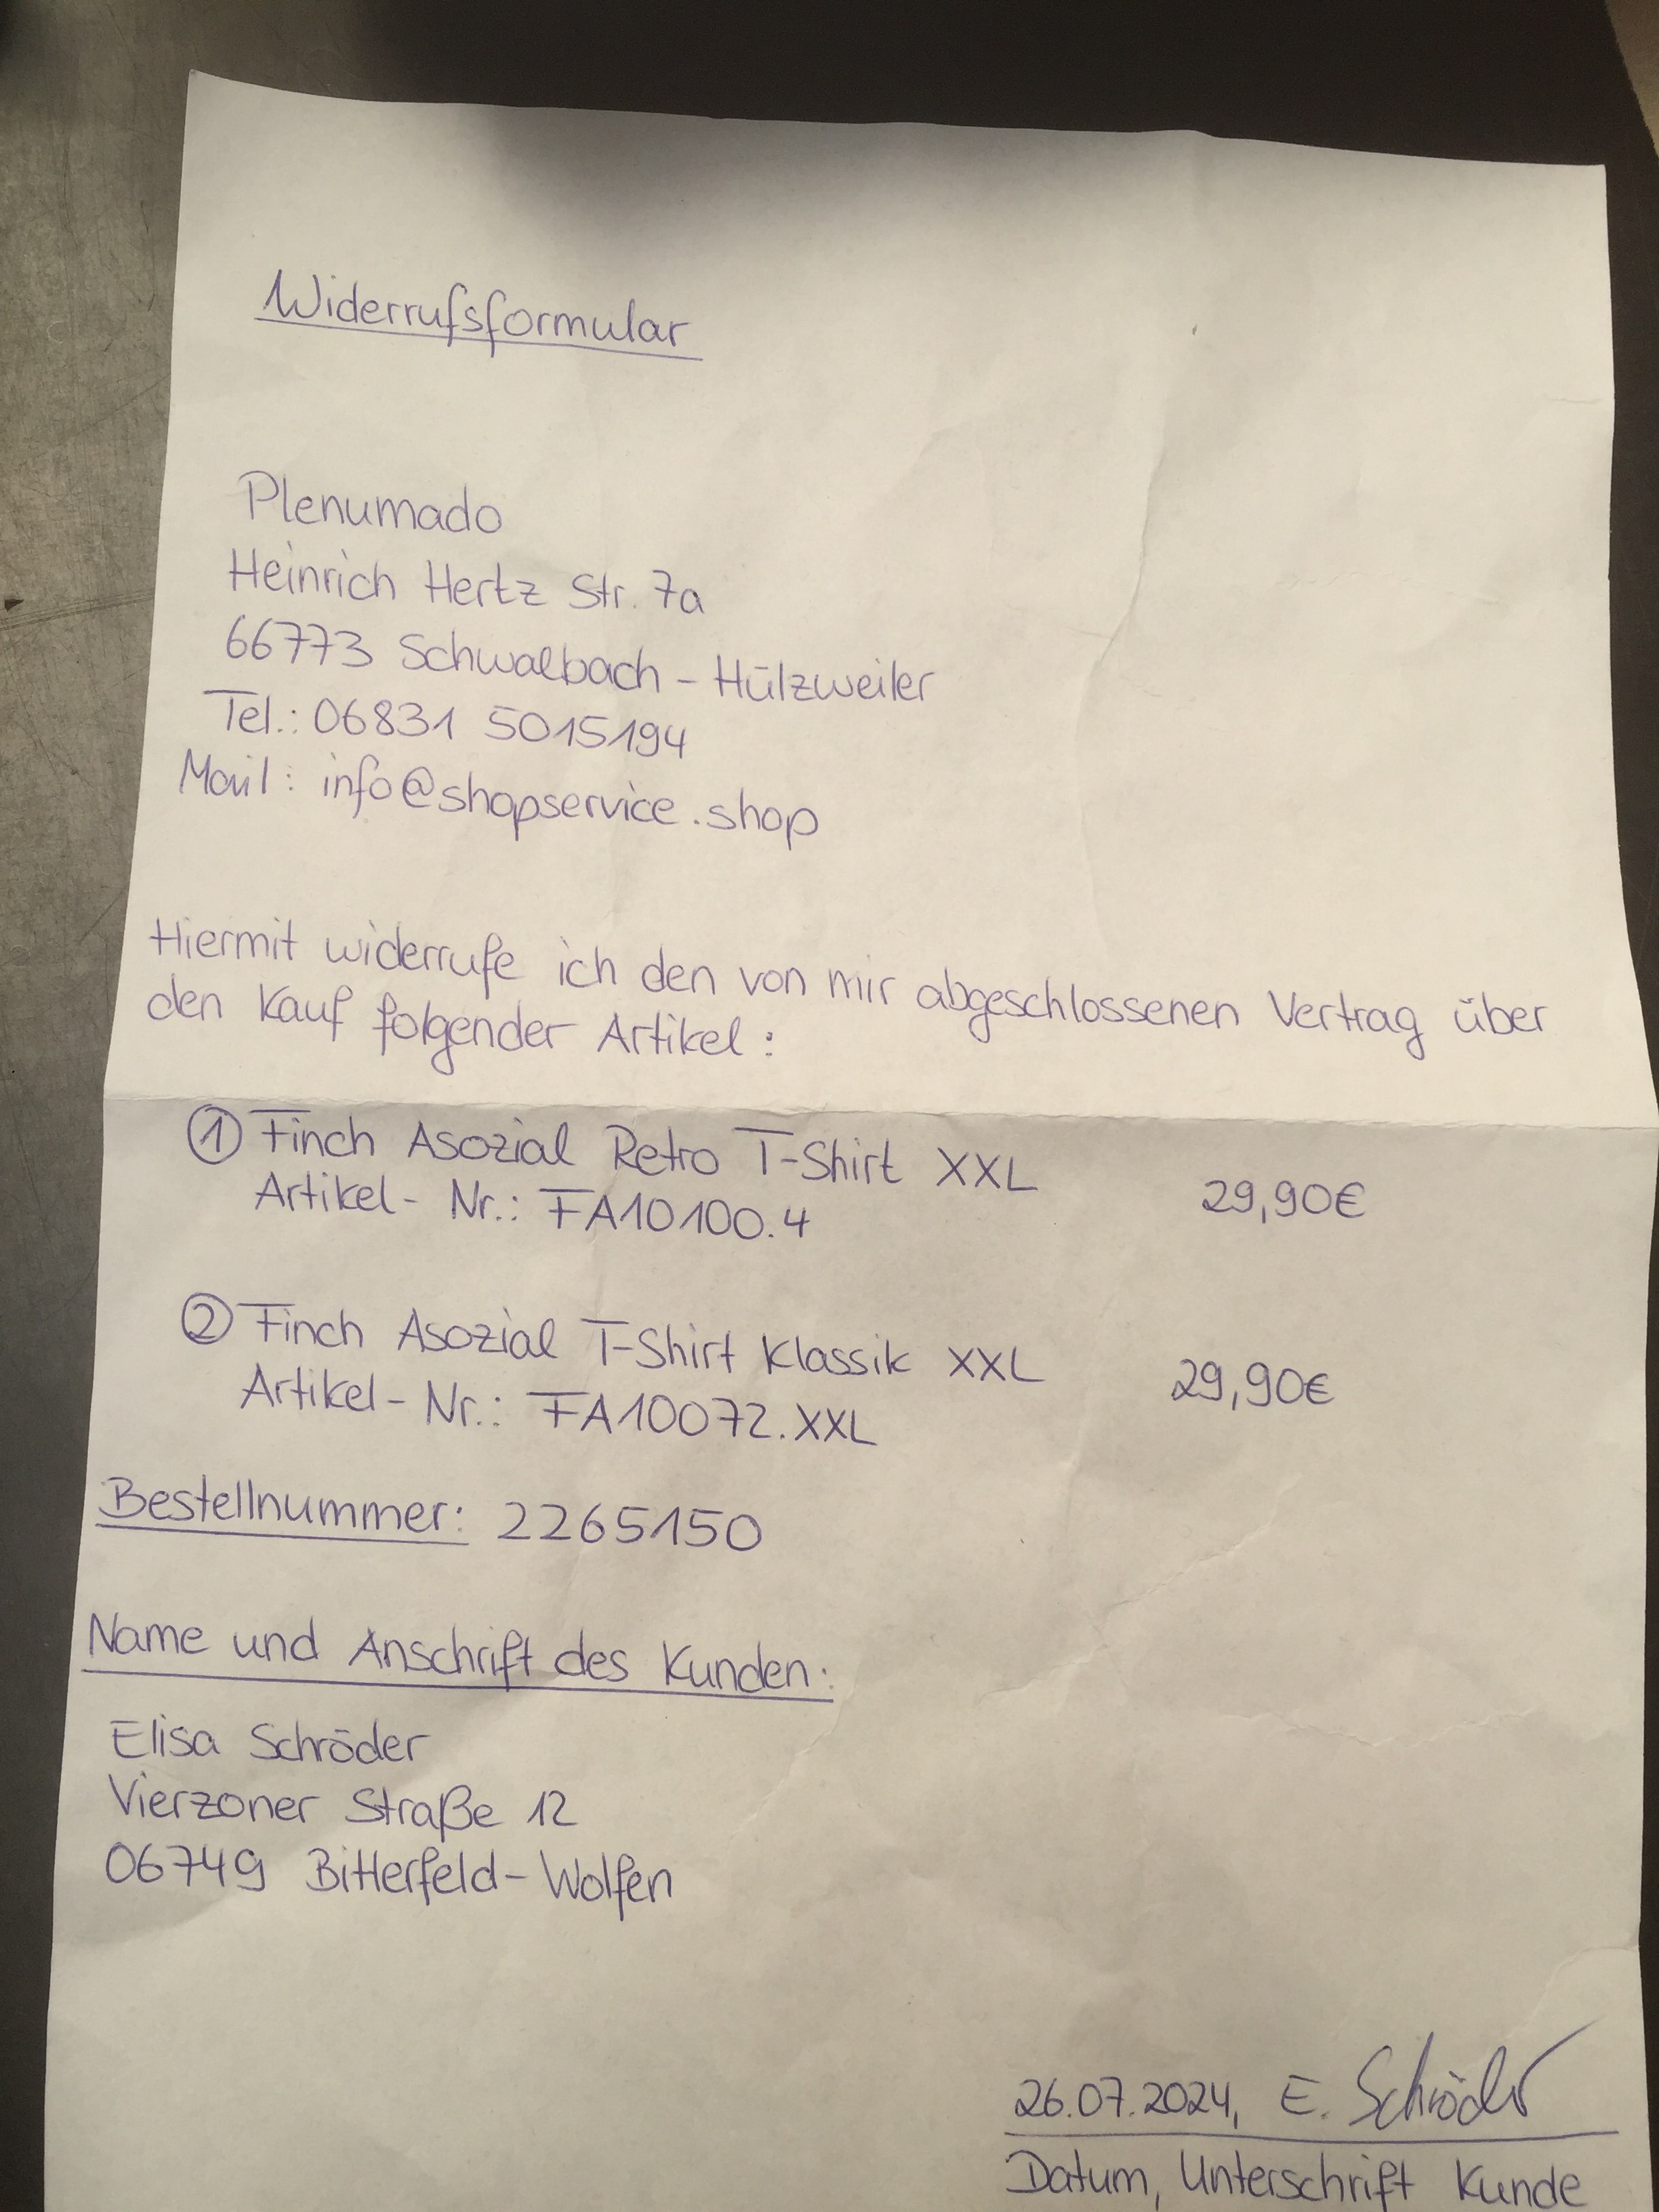 Widerrufsformular
Plenumado
Heinrich Hertz Str. 7a
66773 Schwalbach - Hülzweiler
Tel.: 06831 5015194
Mail: info@shopservice.shop
Hiermit widerrufe ich den von mir abgeschlossenen Vertrag über
den Kauf folgender Artikel:
① Finch Asozial Retro T-Shirt XXL 29,90€
Artikel- Nr.: FA10100.4
② Finch Asozial T-Shirt Klassik XXL 29,90€
Artikel- Nr.: FA10072.XXL
Bestellnummer: 2265150
Name und Anschrift des Kunden:
Elisa Schröder
Vierzoner Straße 12
06749 Bitterfeld-Wolfen
26.07.2024, E. Schröder
Datum, Unterschrift Kunde